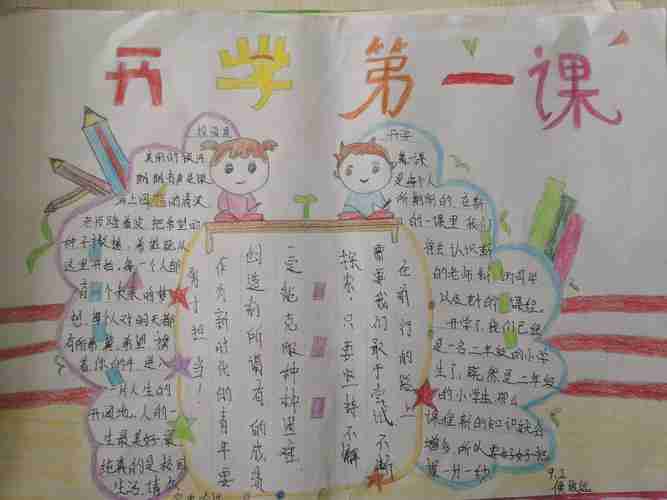 开学第一课
校园里
美丽的校园
朗朗书声是
清波
老师踏着波，把希望的
种子
这里开始，每一个人都
有一个长长的梦
想，每个人对明天都
有所希冀，希望
着你的手 进入
一片人生的
开阔地，人的一
生最美好最
纯真的是校园
生活，请
在前行的路上
需要我们敢于尝试不断
探索，只要坚持不懈
定能克服种种困难
创造前所谓有的成绩
作为新时代的青年要
勇于担当！
开学
第一课
是每个人
所期盼的，在新
的一课里，我们
会去认识新
的老师新的同学
以及新的课程。
开学了，我们已经
是一名二年级的小学
生了，既然是二年级
的小学生，那么
课程新的知识会
增多，所以要好好把
握一分一秒